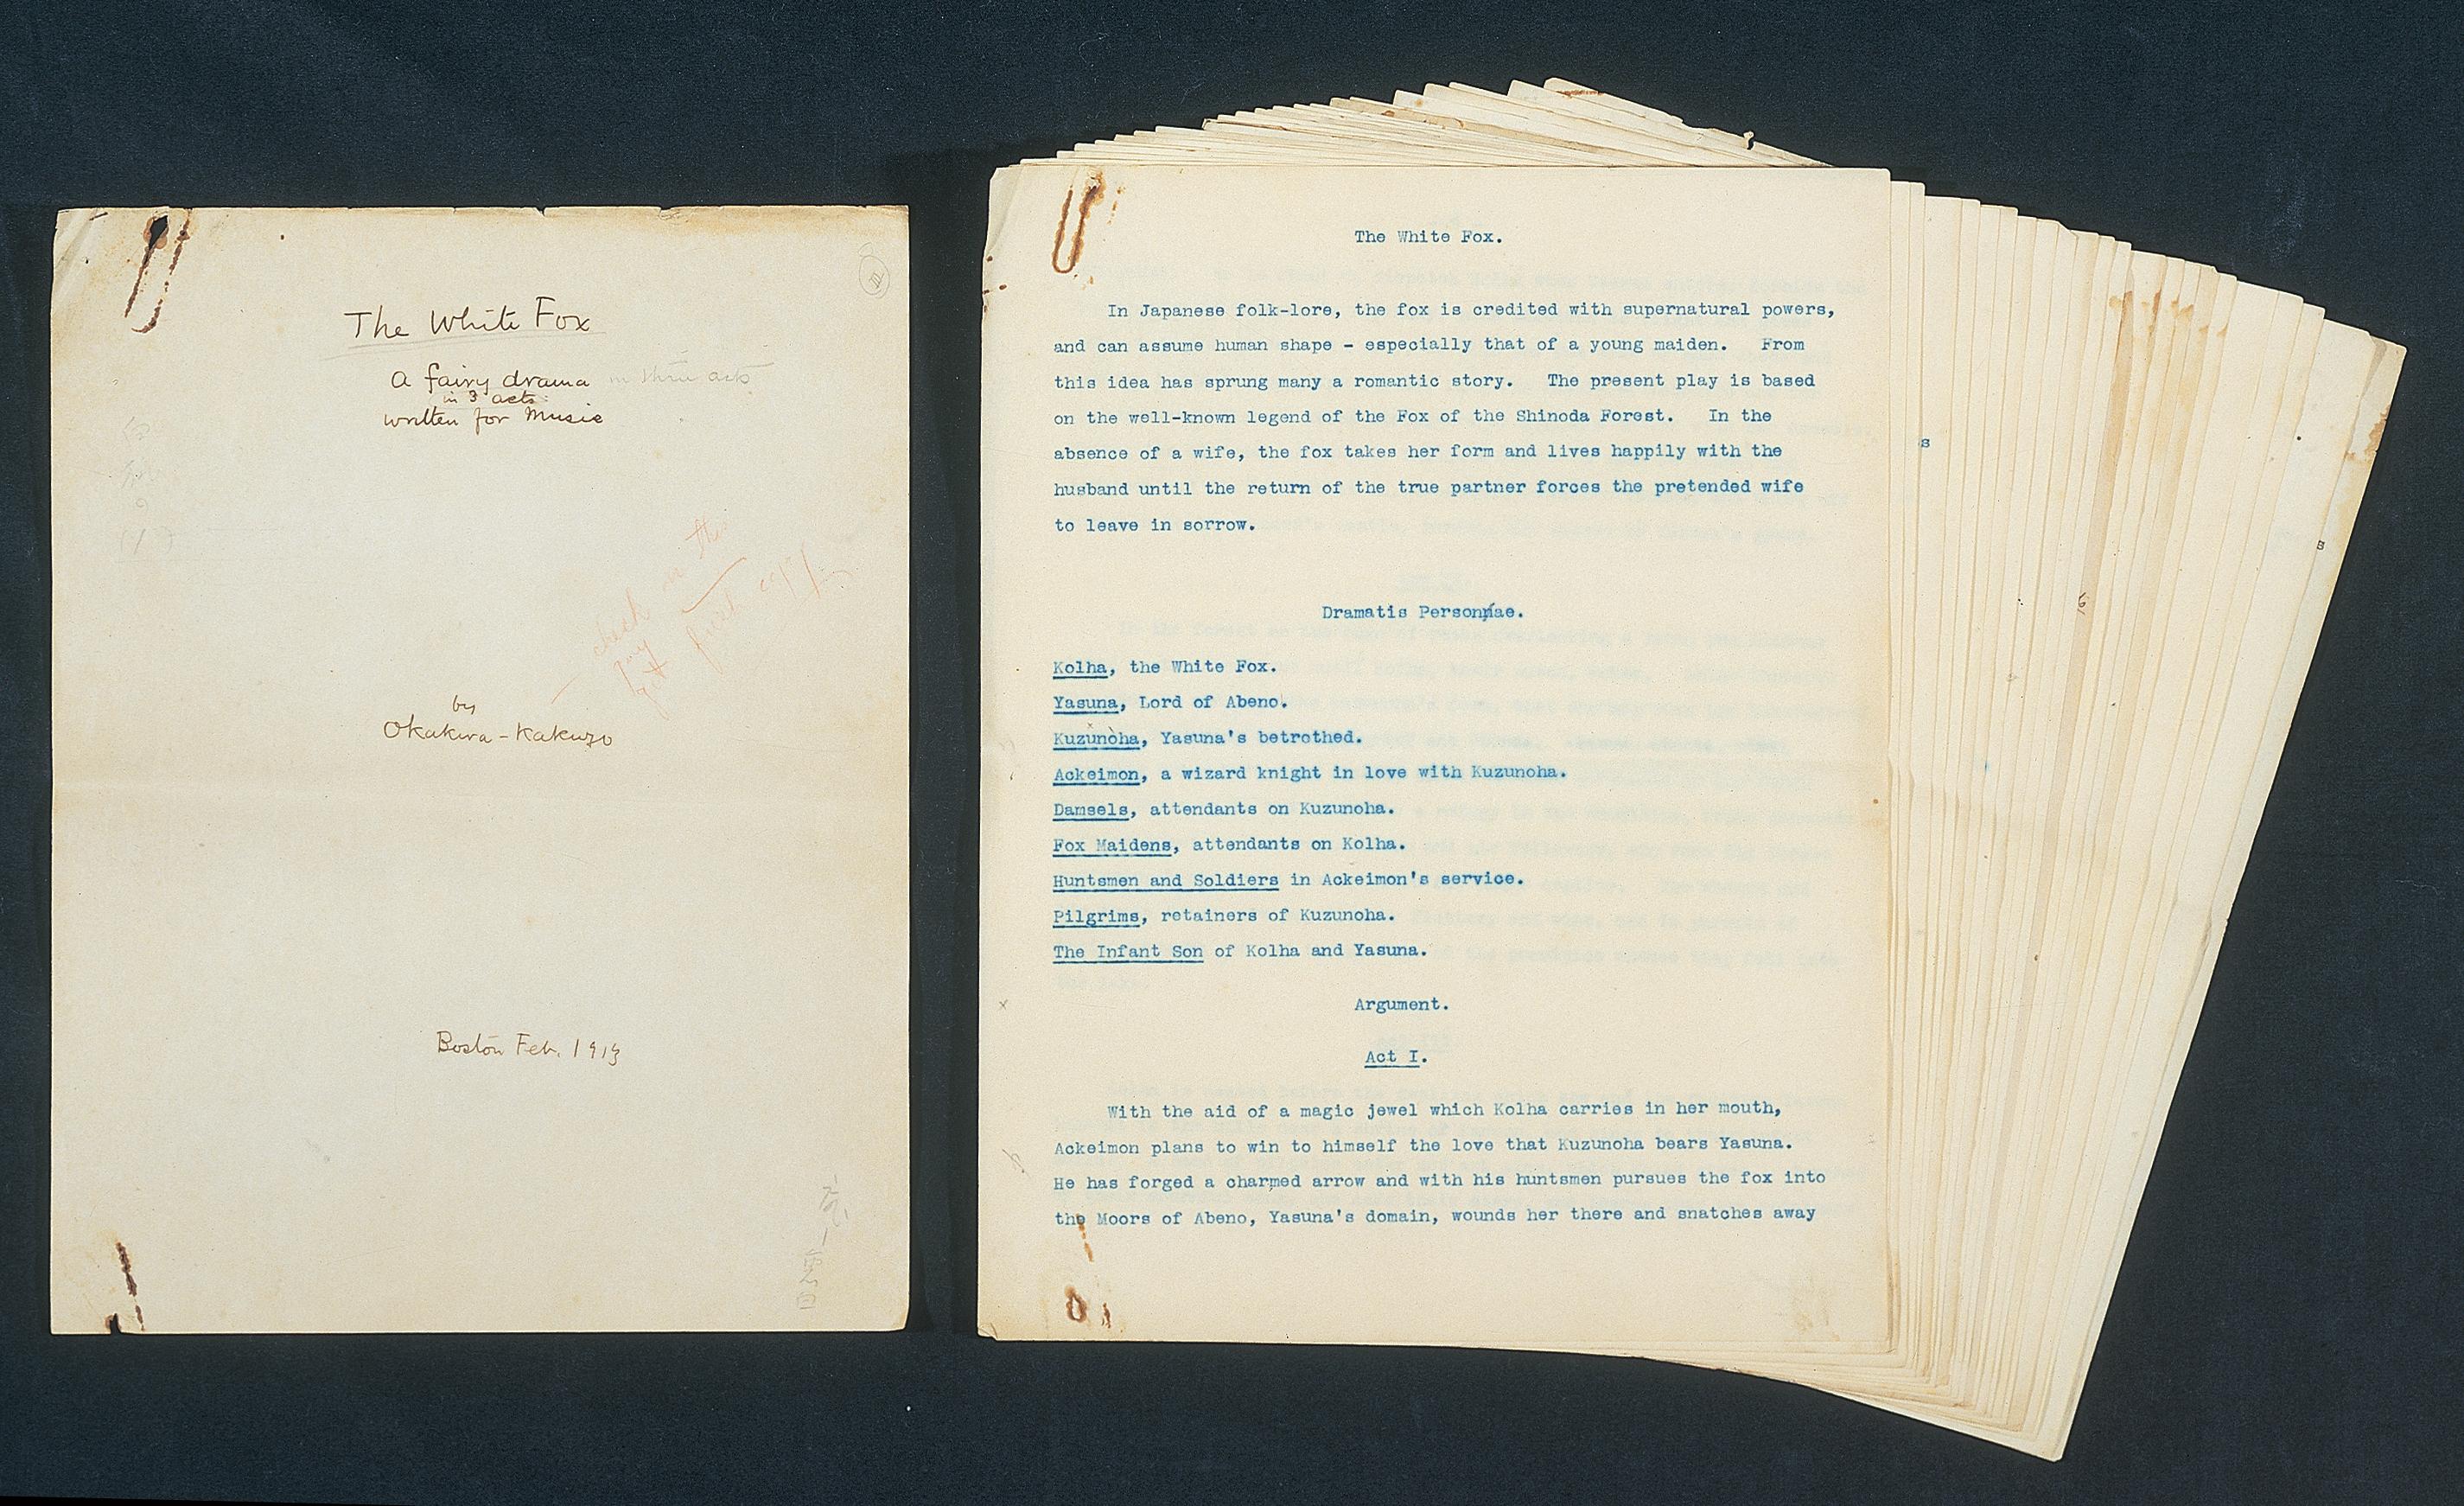 The White Fox
A fairy drama in three acts
in 3 acts
written for Music
the
check
first copy
by
Okakura-Kakuzo
Boston Feb. 1913
The White Fox.
In Japanese folk-lore, the fox is credited with supernatural powers,
and can assume human shape - especially that of a young maiden. From
this idea has sprung many a romantic story. The present play is based
on the well-known legend of the Fox of the Shinoda Forest. In the
absence of a wife, the fox takes her form and lives happily with the
husband until the return of the true partner forces the pretended wife
to leave in sorrow.
Dramatis Personae.
Kolha, the White Fox.
Yasuna, Lord of Abeno.
Kuzunoha, Yasuna's betrothed.
Ackeimon, a wizard knight in love with Kuzunoha.
Damsels, attendants on Kuzunoha.
Fox Maidens, attendants on Kolha.
Huntsmen and Soldiers in Ackeimon's service.
Pilgrims, retainers of Kuzunoha.
The Infant Son of Kolha and Yasuna.
Argument.
Act I.
With the aid of a magic jewel which Kolha carries in her mouth,
Ackeimon plans to win to himself the love that Kuzunoha bears Yasuna.
He has forged a charmed arrow and with his huntsmen pursues the fox into
the Moors of Abeno, Yasuna's domain, wounds her there and snatches away
s